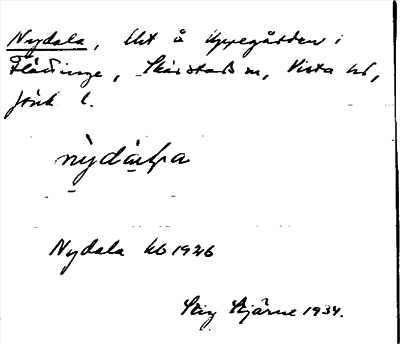 Nydala, lht å Uppegården i
Flättinge, Skärstads sn, Vista hd,
Jönk l.
nỳdàʟa
Nydala kb 1926
Stig Stjärne 1934.